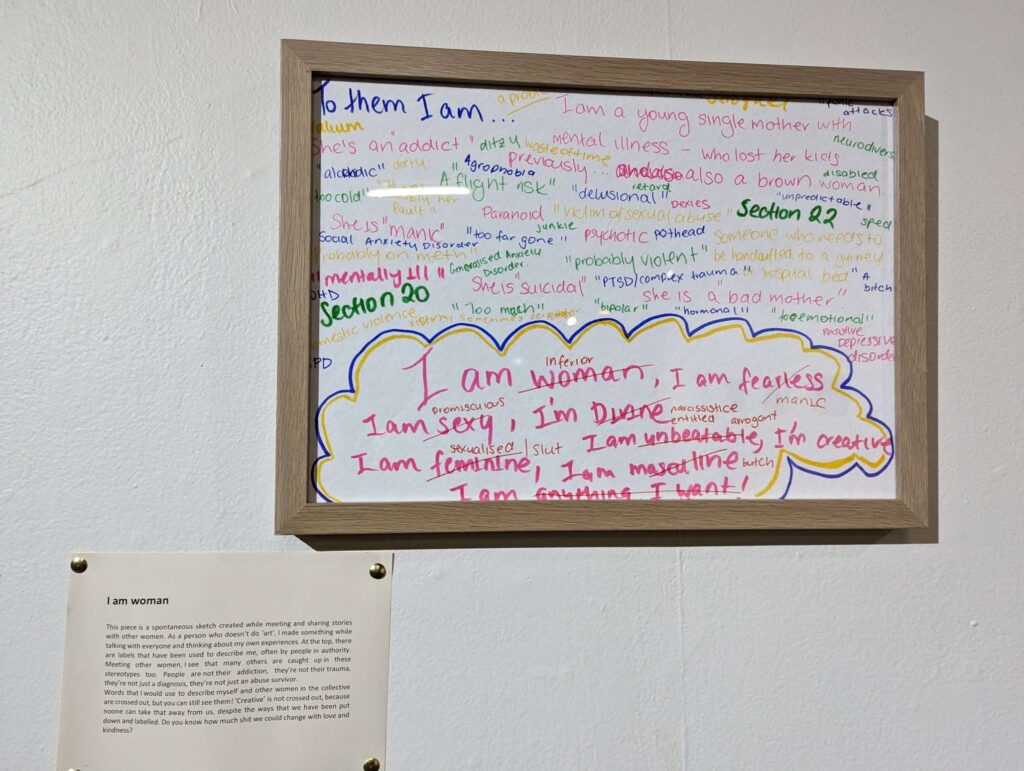 To them I am...
a proble
I am a young single mother with
"panic attacks
neurodivers
She's an "addict"
ditzy
waste of time
mental illness - who lost her kids
"alcoholic"
dirty
"Agrophobia
previously...
also a brown woman.
disabled
too cold"
"A flight risk"
"delusional"
retard
"unpredictable"
fault"
Paranoid
"victim of sexual abuse"
Dexies
Section 22
sped
She is "manic"
junkie
Social Anxiety Disorder
"too far gone"
psychotic
pothead
someone who needs to
probably on meth"
Generalised Anxiety Disorder.
"probably violent"
be handcuffed to a gurney
"mentally Ill"
She is "suicidal"
"PTSD/complex trauma"
hospital bed"
A bitch
DHD
Section 20
She is a "bad mother"
"Too much"
"bipolar"
"hormonal"
"too emotional"
mestic violence
victim, sometimes
PD
Depressive disorder
I am woman, I am fearless
inferior
manic
I am sexy, I'm Divine
promiscuous
narcissistice
entitled
arrogant
sexualised / slut
I am unbeatable, I'm creative
I am feminine, I am masculine
butch
I am anything I want!
I am woman
This piece is a spontaneous sketch created while meeting and sharing stories
with other women. As a person who doesn't do 'art', I made something while
talking with everyone and thinking about my own experiences. At the top, there
are labels that have been used to describe me, often by people in authority.
Meeting other women, I see that many others are caught up in these
stereotypes too. People are not their addiction, they're not their trauma,
they're not just a diagnosis, they're not just an abuse survivor.
Words that I would use to describe myself and other women in the collective
are crossed out, but you can still see them! 'Creative' is not crossed out, because
noone can take that away from us, despite the ways that we have been put
down and labelled. Do you know how much shit we could change with love and
kindness?